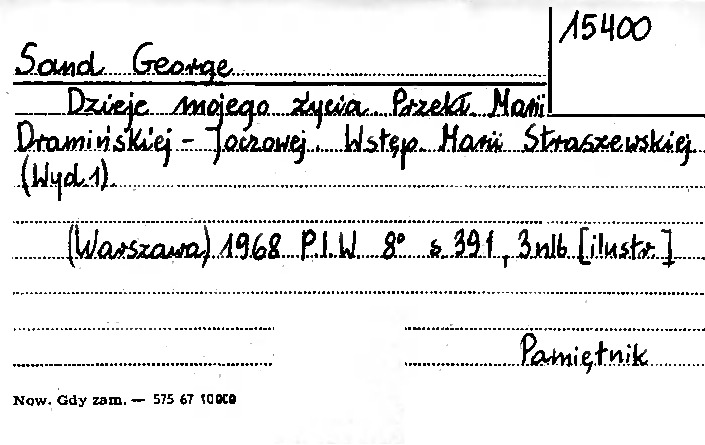 15400
Sand George
Dzieje mojego życia. Przekł. Marii
Dramińskiej - Joczowej. Wstęp. Marii Straszewskiej
(Wyd 1).
(Warszawa) 1968 P.I.W 8° s 391, 3 nlb [ilustr.]
Pamiętnik
Now. Gdy zam. — 575 67 10000